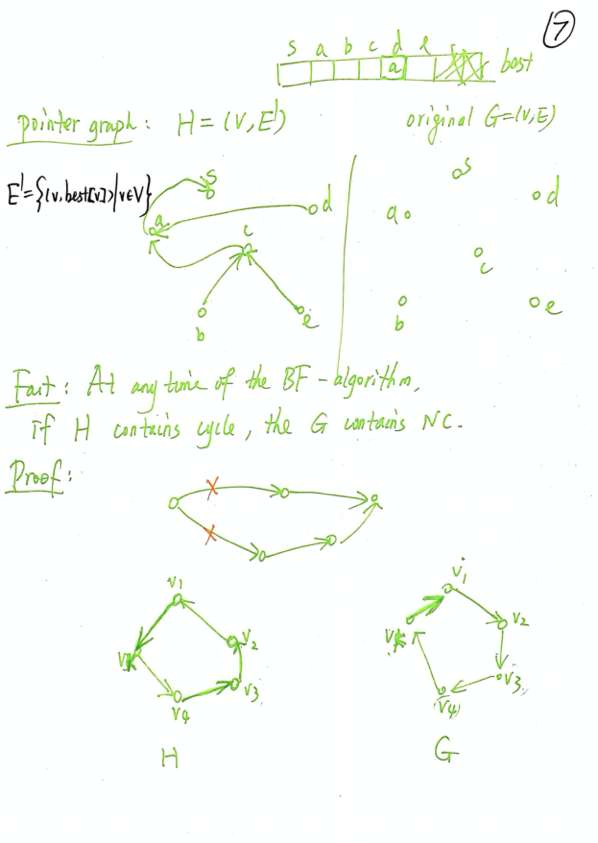 ⑦
s a b c d e
a best
pointer graph: H = (V, E')
original G=(V,E)
E'={(v, best[v])|v∈V}
s
a
d
c
b
e
s
a
d
c
b
e
Fact: At any time of the BF-algorithm,
if H contains cycle, the G contains NC.
Proof:
v1
vk
v2
v3
v4
H
v1
vk
v2
v3
v4
G